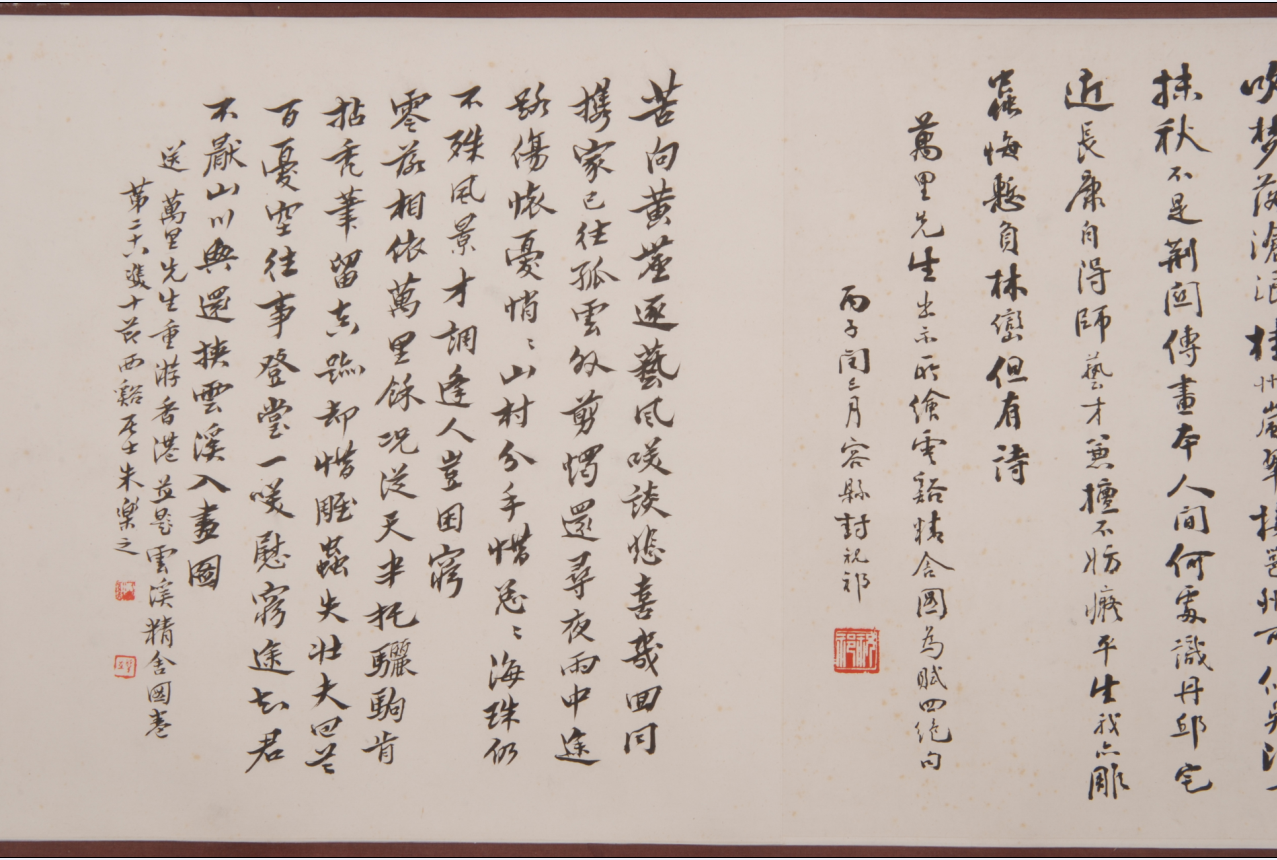 吹梦落滄浪桂州岩翠
抹秋不是荆関傳畫本人間何處識丹邱宅
近長康自得師藝才兼擅不妨癡平生我亦雕
蟲悔懸負林巒但有詩
萬里先生出示所繪雲谿精舍圖為賦四絶句
丙子閏三月容縣封祝祁
祝祁
苦向黄塵逐藝風咲談悲喜幾回同
携家已往孤雲外剪燭還尋夜雨中途
路傷懐憂悄〻山村分手惜怱〻海珠仍
不殊風景才調逢人豈困窮
零落相依萬里餘况從天末托驪駒肯
拈秃筆留高跡却惜雕蟲失壮夫回首
百憂空往事登堂一咲慰窮途知君
不厭山川興還挾雲溪入畫圖
送萬里先生重游香港並題雲溪精舍圖卷
第二十六雙十節西谿居士朱樂之